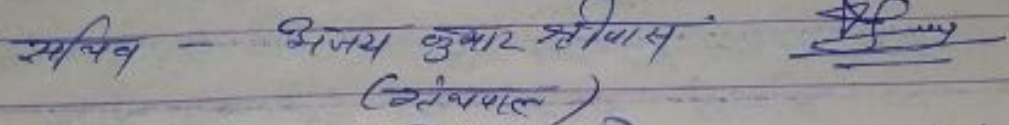 सचिव - अजय कुमार श्रीवास
(ग्रंथपाल)